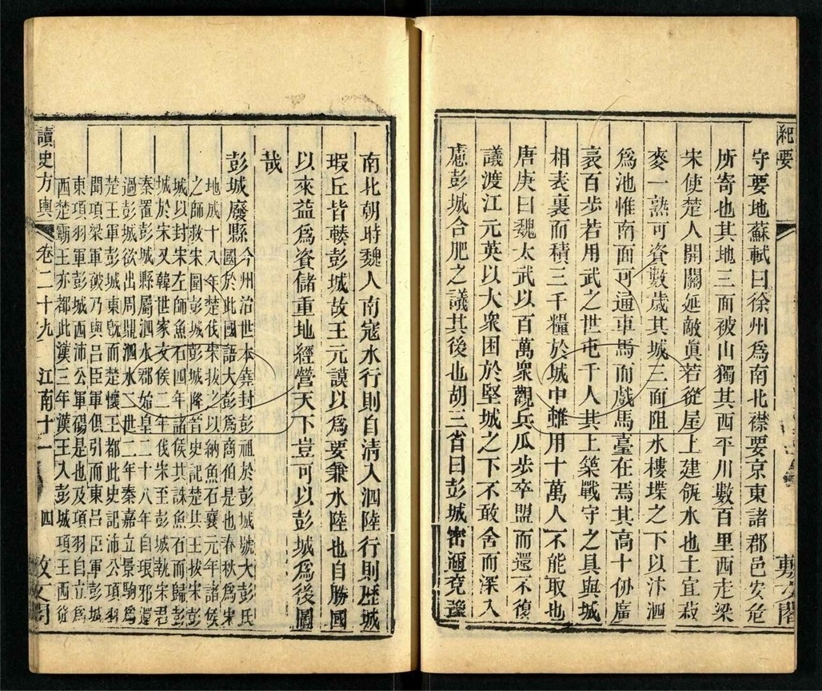 紀要
敷文閣
守要地蘇軾曰徐州爲南北襟要京東諸郡邑安危
所寄也其地三面被山獨其西平川數百里西走梁
宋使楚人開關延敵眞若從屋上建瓴水也土宜菽
麥一熟可資數歲其城三面阻水樓堞之下以汴泗
爲池惟南面可通車馬而戲馬臺在焉其高十仞廣
袤百步若用武之世屯千人其上築戰守之具與城
相表裏而積三千糧於城中雖用十萬人不能取也
唐庚曰魏太武以百萬衆觀兵瓜步卒盟而還不復
議渡江元英以大衆困於堅城之下不敢舍而深入
慮彭城合肥之議其後也胡三省曰彭城密邇兗豫
南北朝時魏人南寇水行則自清入泗陸行則歷城
瑕丘皆輳彭城故王元謨以爲要兼水陸也自勝國
以來益爲資儲重地經營天下豈可以彭城爲後圖
哉
彭城廢縣今州治世本堯封彭祖於彭城號大彭氏
國於此國語大彭爲商伯是也春秋爲宋
地成十八年楚伐宋拔之以納魚石襄元年諸侯
之師救宋圍彭城彭城降晉史記楚共王拔宋彭
城以封宋左師魚石四年諸侯共誅魚石而歸彭
城於宋又韓世家文侯二年伐宋至彭城執宋君
秦置彭城縣屬泗水郡始皇二十八年自琅邪還
過彭城欲出周鼎泗水二世二年秦嘉立景駒爲
楚王軍彭城東旣而楚懷王都此史記沛公項羽
聞項梁軍破乃與呂臣軍俱引而東呂臣軍彭城
東項羽軍彭城西沛公軍碭是也及項羽自立爲
西楚霸王亦都此漢三年漢王入彭城項王西從
讀史方輿
卷二十九
江南十一
四
敷文閣